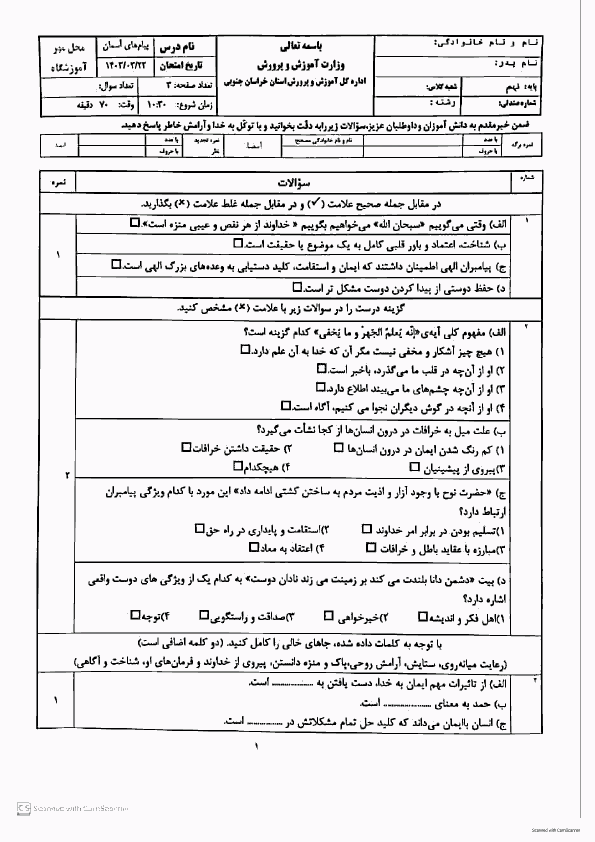 نام و نام خانوادگی:
نام پدر:
پایه: نهم
شعبه کلاس:
شماره صندلی:
رشته :
باسمه تعالی
وزارت آموزش و پرورش
اداره کل آموزش و پرورش استان خراسان جنوبی
نام درس
پیام‌های آسمان
تاریخ امتحان
۱۴۰۳/۰۳/۲۳
تعداد صفحه: ۳
تعداد سوال:
زمان شروع: ۱۰:۳۰
وقت: ۷۰ دقیقه
محل مهر
آموزشگاه
ضمن خیرمقدم به دانش آموزان وداوطلبان عزیز،سؤالات زیررابه دقّت بخوانید و با توکّل به خدا وآرامش خاطر پاسخ دهید.
نمره برگه
با عدد
با حروف
نام و نام خانوادگی مصحح
امضا
نمره تجدید نظر
با عدد
با حروف
امضا
شماره
سؤالات
نمره
در مقابل جمله صحیح علامت (✓) و در مقابل جمله غلط علامت (×) بگذارید.
۱
الف) وقتی می‌گوییم «سبحان الله» می‌خواهیم بگوییم « خداوند از هر نقص و عیبی منزه است».□
ب) شناخت، اعتماد و باور قلبی کامل به یک موضوع یا حقیقت است.□
ج) پیامبران الهی اطمینان داشتند که ایمان و استقامت، کلید دستیابی به وعده‌های بزرگ الهی است.□
د) حفظ دوستی از پیدا کردن دوست مشکل تر است.□
۱
گزینه درست را در سوالات زیر با علامت (×) مشخص کنید.
۲
الف) مفهوم کلی آیه‌ی«إنَّه یُعلمُ الجَهرَ و ما یَخفی» کدام گزینه است؟
۱) هیچ چیز آشکار و مخفی نیست مگر آن که خدا به آن علم دارد.□
۲) او از آن‌چه در قلب ما می‌گذرد، باخبر است.□
۳) او از آن‌چه چشم‌های ما می‌بیند اطلاع دارد.□
۴) او از آنچه در گوش دیگران نجوا می کنیم، آگاه است.□
ب) علت میل به خرافات در درون انسان‌ها از کجا نشأت می‌گیرد؟
۱) کم رنگ شدن ایمان در درون انسان‌ها □ ۲) حقیقت داشتن خرافات□
۳)پیروی از پیشینیان □ ۴) هیچکدام□
ج) «حضرت نوح با وجود آزار و اذیت مردم به ساختن کشتی ادامه داد» این مورد با کدام ویژگی پیامبران
ارتباط دارد؟
۱)تسلیم بودن در برابر امر خداوند □ ۲)استقامت و پایداری در راه حق□
۳)مبارزه با عقاید باطل و خرافات □ ۴) اعتقاد به معاد□
د) بیت «دشمن دانا بلندت می کند بر زمینت می زند نادان دوست» به کدام یک از ویژگی های دوست واقعی
اشاره دارد؟
۱)اهل فکر و اندیشه□ ۲)خیرخواهی □ ۳)صداقت و راستگویی□ ۴)توجه□
۲
با توجه به کلمات داده شده، جاهای خالی را کامل کنید. (دو کلمه اضافی است)
(رعایت میانه‌روی، ستایش، آرامش روحی،پاک و منزه دانستن، پیروی از خداوند و فرمان‌های او، شناخت و آگاهی)
الف) از تاثیرات مهم ایمان به خدا، دست یافتن به .................. است.
ب) حمد به معنای .................. است.
ج) انسان باایمان می‌داند که کلید حل تمام مشکلاتش در ............... است.
۱
۱
CS Scanned with CamScanner
Scanned with CamScanner